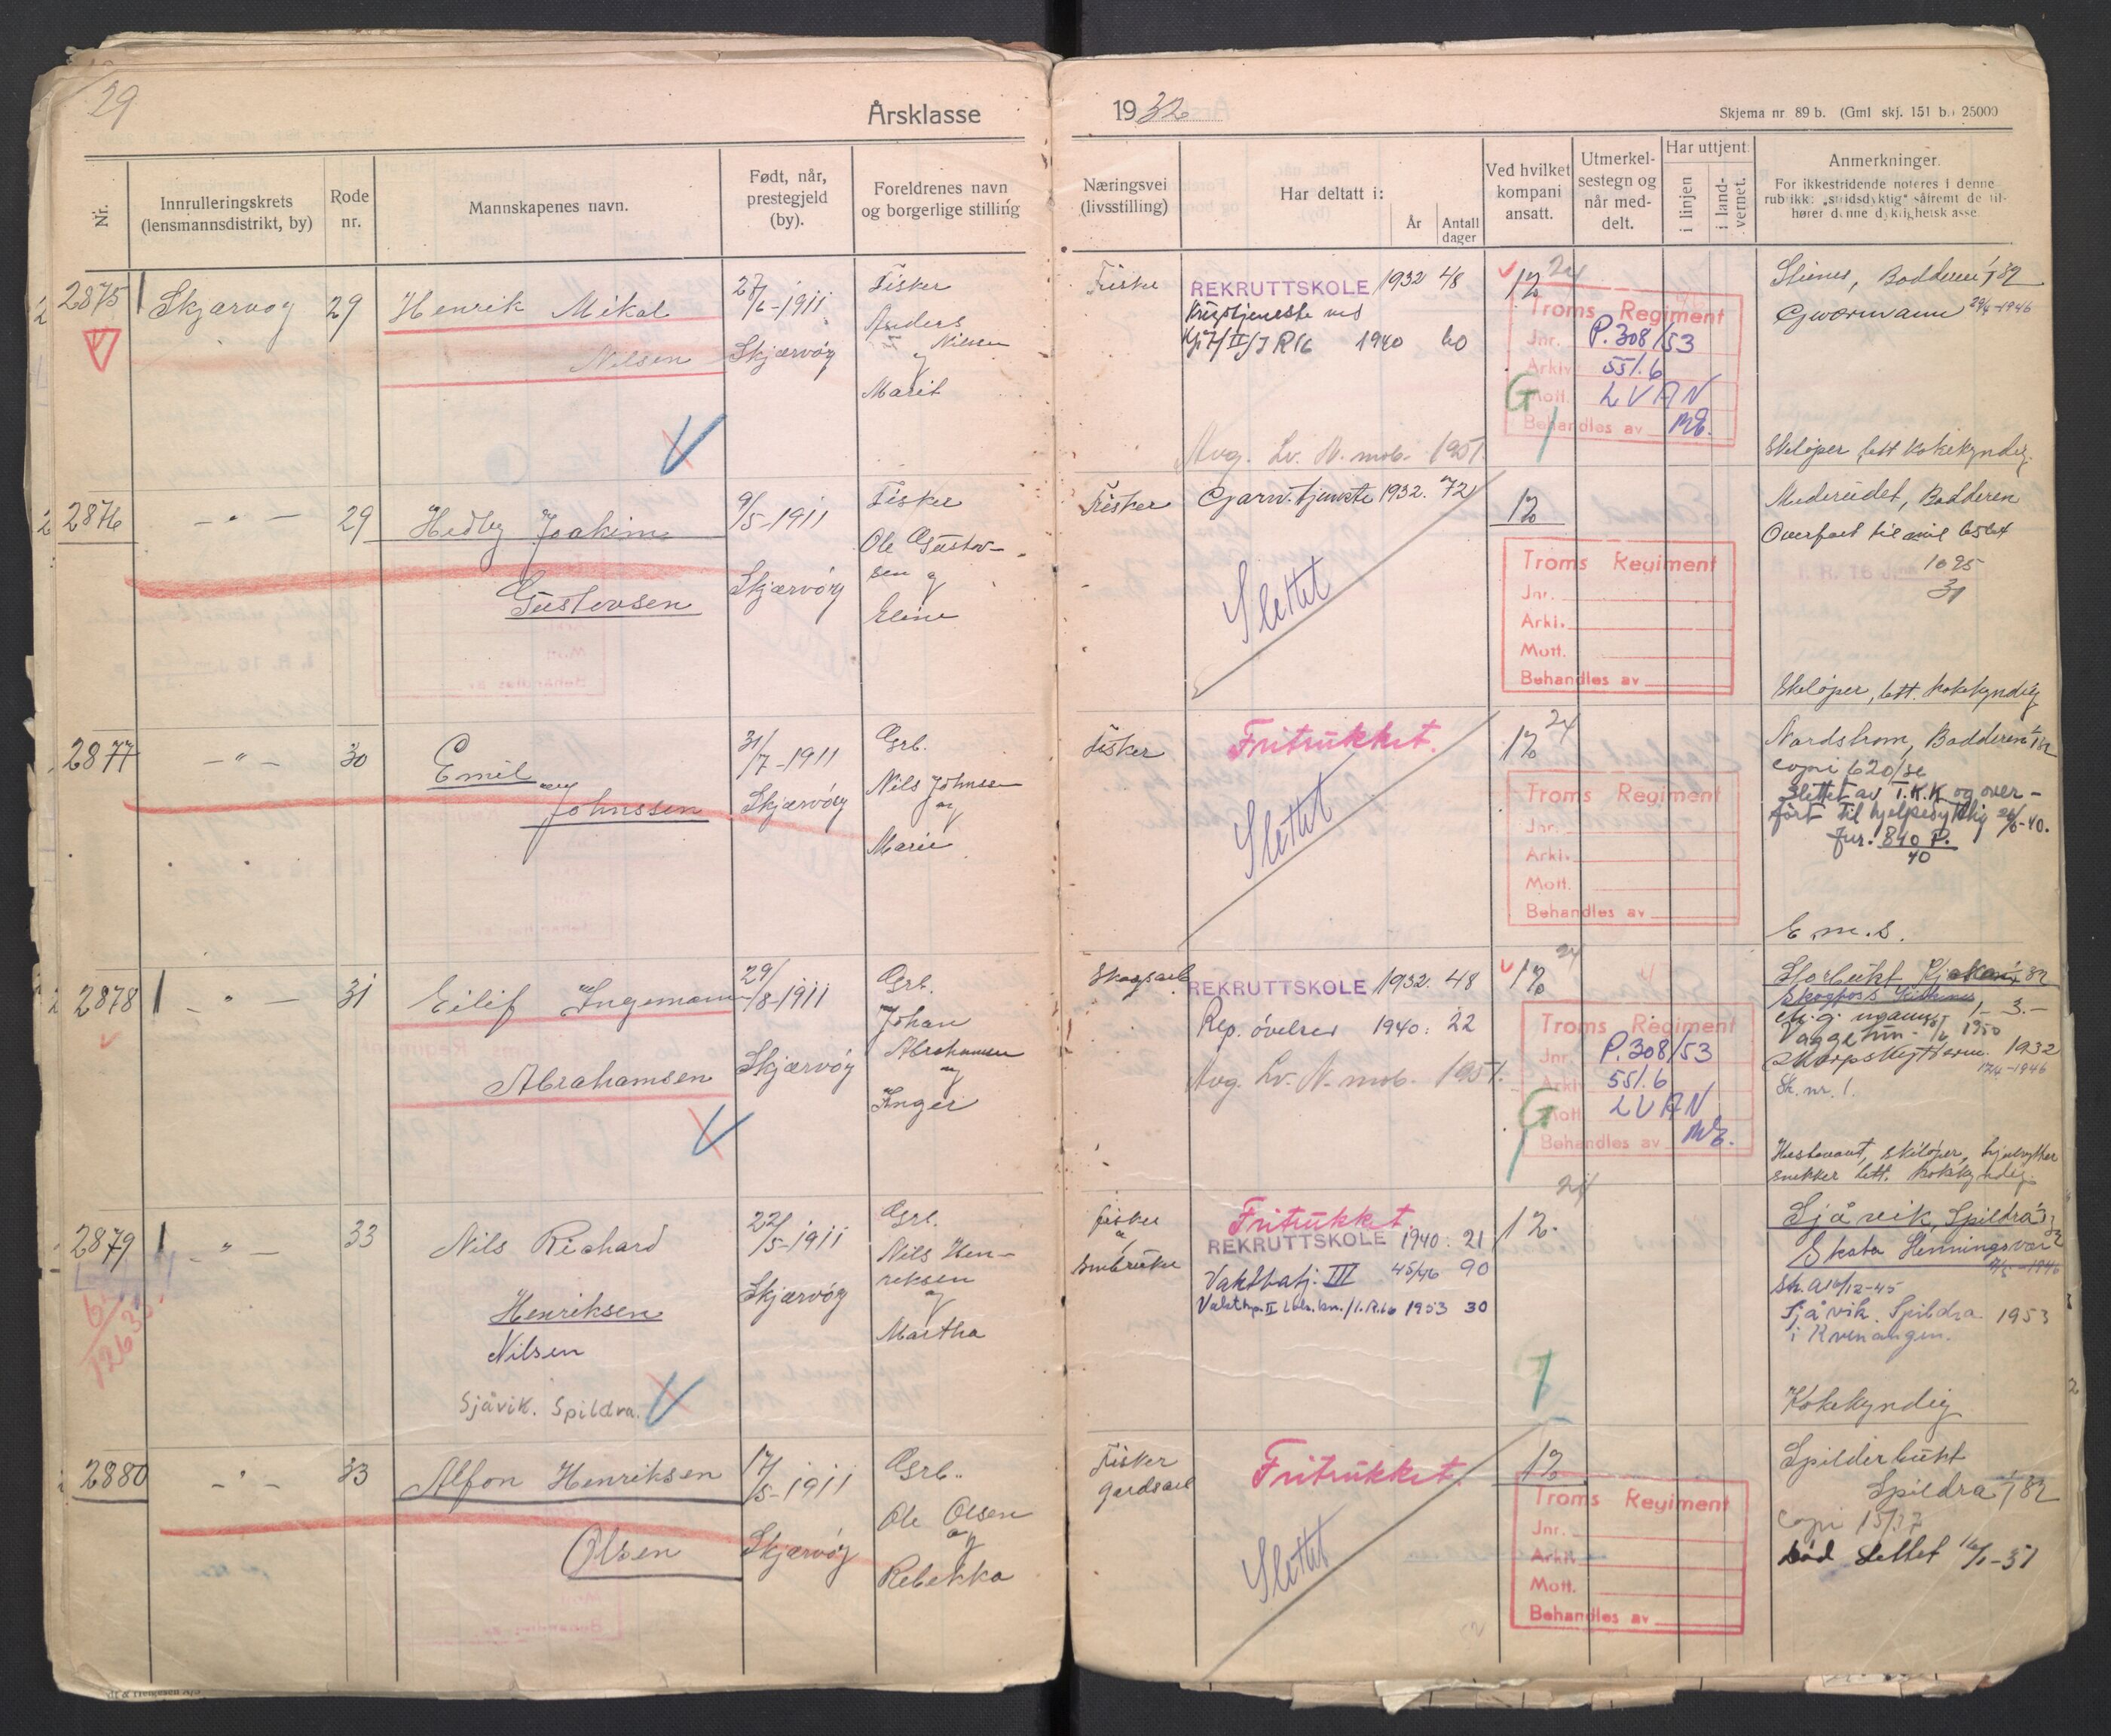 29
Årsklasse
1932
Skjema nr. 89 b. (Gml. skj. 151 b.) 25000
Nr.
Innrulleringskrets
(lensmannsdistrikt, by)
Rode
nr.
Mannskapenes navn.
Født, når,
prestegjeld
(by).
Foreldrenes navn
og borgerlige stilling
Næringsvei
(livsstilling)
Har deltatt i:
År
Antall
dager
Ved hvilket
kompani
ansatt.
Utmerkel-
sestegn og
når med-
delt.
Har uttjent.
i linjen
i land-
vernet.
Anmerkninger.
For ikkestridende noteres i denne
rubrikk: „stridsdyktig" såfremt de til-
hører denne dyktighetsklasse
2875
Skjærvøy
29
Henrik Mikal
Nilsen
27/6-1911
Skjærvøy
Fisker
Anders
Nilsen
og
Marit
Fisker
REKRUTTSKOLE 1932 48
Krigstjeneste ved
Kp 7/II/IR16 1940 60
Avg. Lv. N. mob. 1951.
12
24
Troms Regiment
Jnr. P.308/53
Arkiv 551.6
Mott. LVAN
Behandles av
G
Badderen 1/82
29/4-1946
Skiløper, lett kokekyndig.
2876
- " -
29
Hedly Joakim
Gustavsen
9/5-1911
Skjærvøy
Fisker
Ole Gustav-
sen og
Eline
Fisker
Garn. tjeneste 1932. 72
Slettet
12
Troms Regiment
Jnr.
Arkiv.
Mott.
Behandles av
Badderen
1095
31
Skiløper, lett. kokekyndig
2877
- " -
30
Emil
Johnssen
31/7-1911
Skjærvøy
Grb.
Nils Johnssen
og
Marie
Fisker
Fritrukket.
Slettet
12
24
Troms Regiment
Jnr.
Arkiv.
Mott.
Behandles av
Nordstrøm, Badderen 1/82
Copi 620/36
Slettet av T.K.K og over-
ført til hjelpedyktig 26/6-40.
Jnr. 840 P.
40
E. m. s.
2878
- " -
31
Eilif Ingemann
Abrahamsen
29/8-1911
Skjærvøy
Grb.
Johan
Abrahamsen
og
Inger
Skogsarb
REKRUTTSKOLE 1932. 48
Rep. øvelser 1940: 22
Avg. Lv. N. mob. 1951.
12
24
Troms Regiment
Jnr. P.308/53
Arkiv 551.6
Mott. LVAN
Behandles av
G
Storbukt,
1950
1932
17/4-1946
Sk. nr. 1.
skiløper,
snekker lett. kokkyndig.
2879
- " -
33
Nils Richard
Henriksen
Nilsen
Sjåvik. Spildra.
22/5-1911
Skjærvøy
Grb.
Nils Hen-
riksen
og
Martha
Fisker
&
småbruker
Fritrukket.
REKRUTTSKOLE 1940: 21
Vaktbatj. III 45/46 90
1953 30
12.
24
Sjåvik, Spildra
Henningsvær
Sk. A 10/12-45
Sjåvik. Spildra 1953
i Kvenangen.
Kokekyndig
2880
- " -
33
Alfon Henriksen
Olsen
17/5-1911
Skjærvøy
Grb.
Ole Olsen
og
Rebekka
Fisker
gardsarb
Fritrukket.
Slettet
12
Troms Regiment
Jnr.
Arkiv.
Mott.
Behandles av
Spilderbukt
Spildra 1/82
Copi 15/37
Død slettet